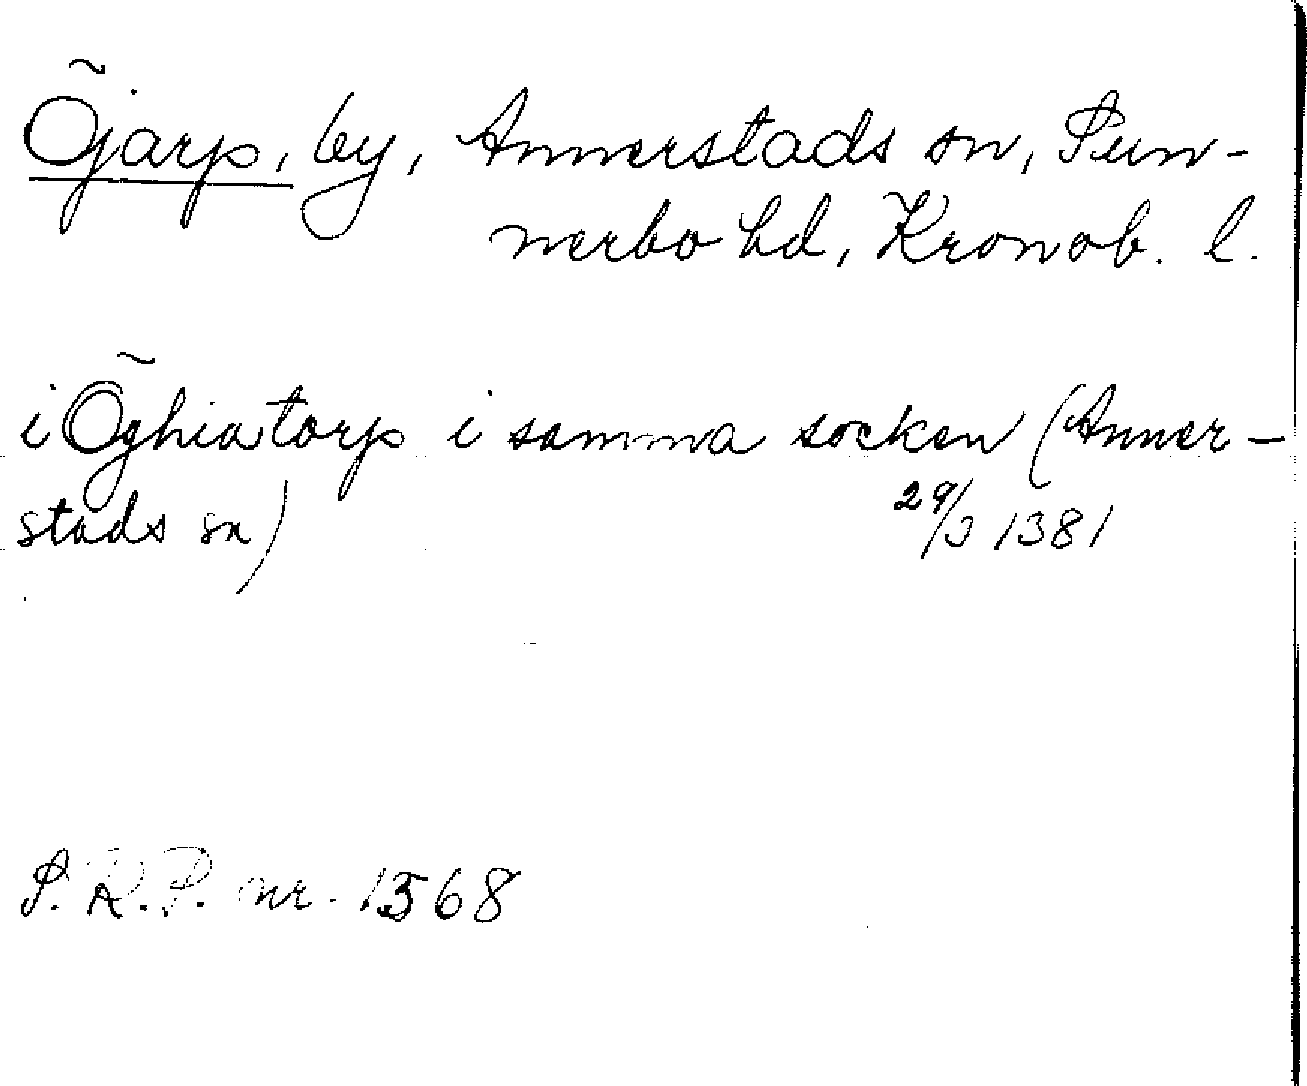 Õjarp, by, Annerstads sn, Sun-
nerbo hd, Kronob. l.
i Õghiatorp i samma socken (Anner-
stads sn)
29/3 1381
S. R. P. nr. 1568